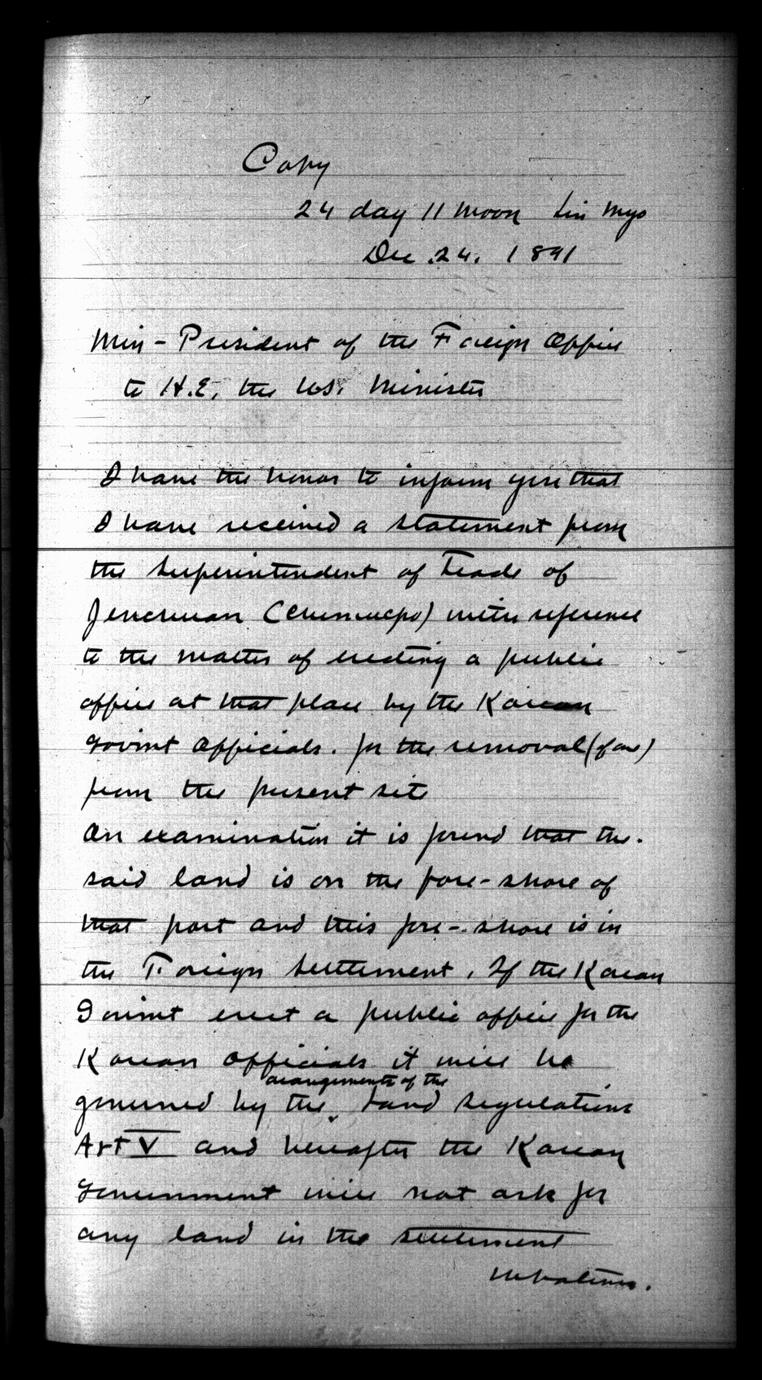 Copy
24 day 11 Moon Sin Myo
Dec. 24. 1891
Min-President of the Foreign Office
to H.E. the U.S. Minister
I have the honor to inform you that
I have received a statement from
the Superintendent of Trade of
Jenchuan (Chemulpo) with reference
to the matter of erecting a public
office at that place by the Korean
Govmt Officials. for the removal
from the present site
On examination it is found that the.
said land is on the fore-shore of
that port and this fore-shore is in
the Foreign Settlement. If the Korean
Govmnt erect a public office for the
Korean officials it will be
governed by the arrangements of the Land Regulations
Art V and hereafter the Korean
Government will not ask for
any land in the settlement